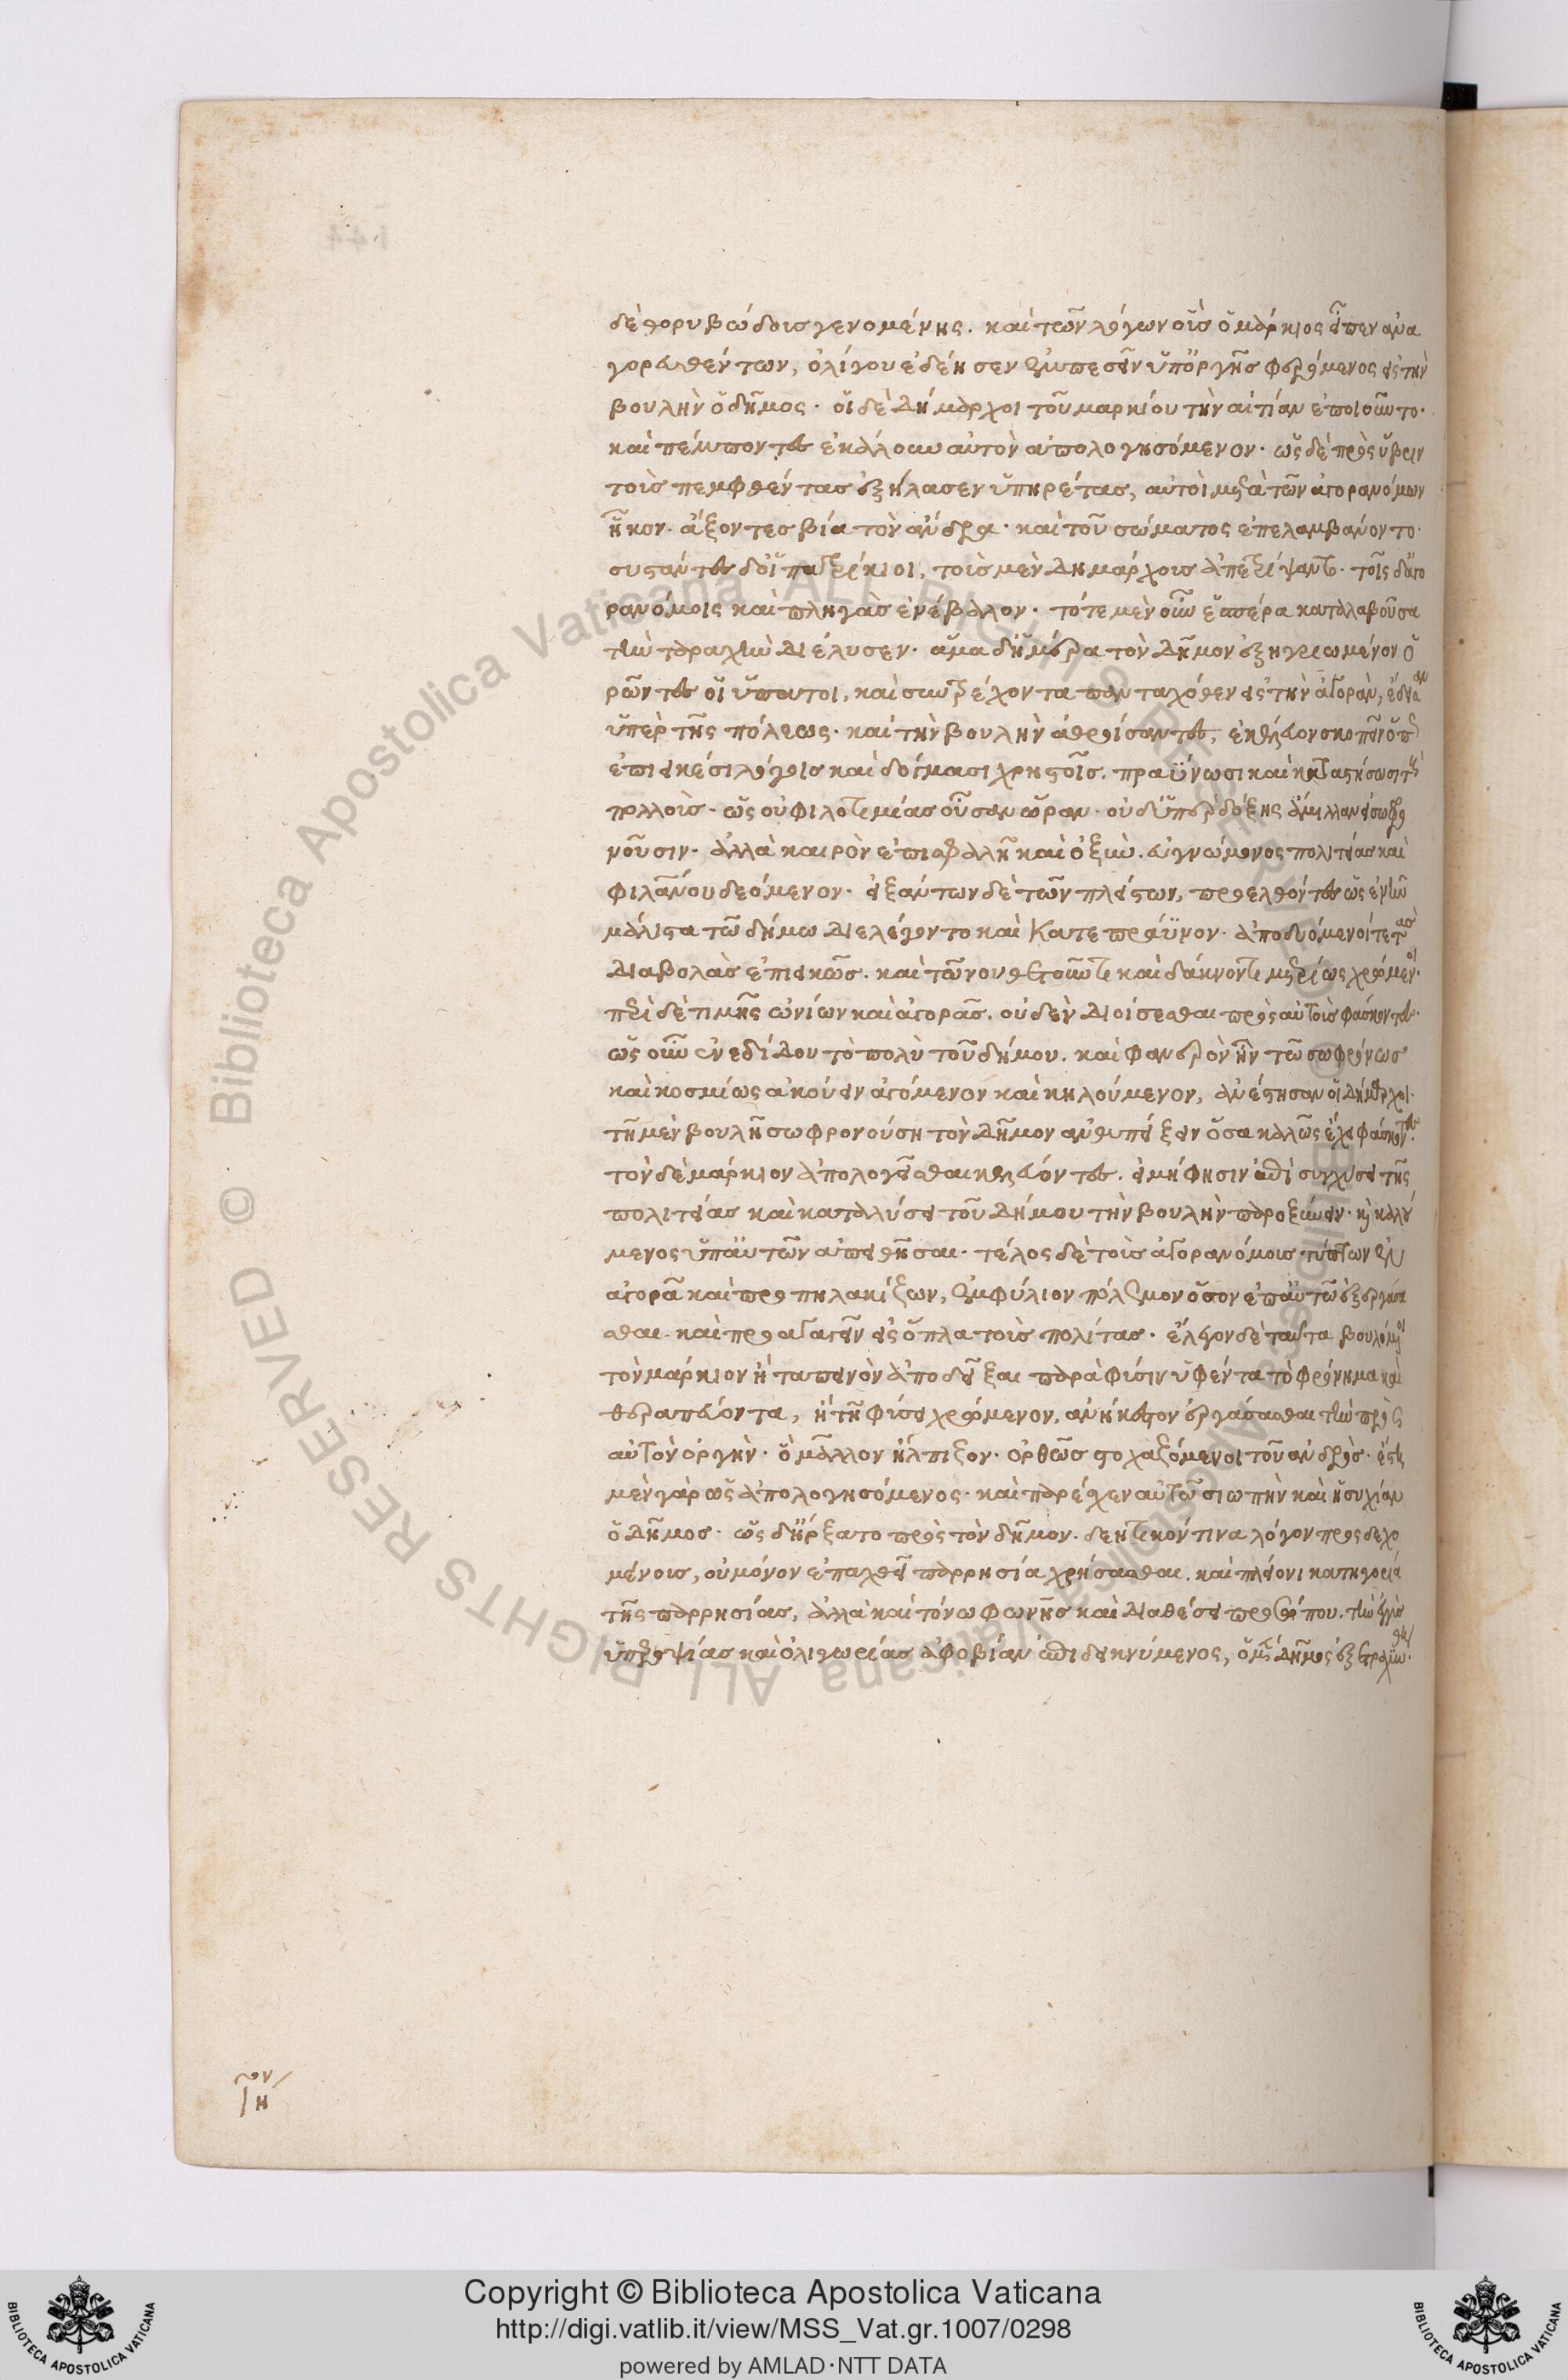 δὲ θορυβώδους γενομένης. καὶ τῶν λόγων οὓς ὁ μάρκιος εἶπεν ἀνα
γορευθέντων, ὀλίγου ἐδέησεν ἐμπεσεῖν ὑπ' ὀργῆς φερόμενος εἰς τὴν
βουλὴν ὁ δῆμος. οἱ δὲ δήμαρχοι τοῦ μαρκίου τὴν αἰτίαν ἐποιοῦντο.
καὶ πέμποντες ἐκάλουν αὐτὸν ἀπολογησόμενον. ὡς δὲ πρὸς ὕβριν
τοὺς πεμφθέντας ἐξήλασεν ὑπηρέτας, αὐτοὶ μετὰ τῶν ἀγορανόμων
ἧκον. ἄξοντες βία τὸν ἄνδρα. καὶ τοῦ σώματος ἐπελαμβάνοντο.
συστάντες δ' οἱ πατρίκιοι, τοὺς μὲν δημάρχους ἀπετρίψαντο. τοῖς δ' ἀγο
ρανόμοις καὶ πληγὰς ἐνέβαλον. τότε μὲν οὖν ἑσπέρα καταλαβοῦσα
τὴν ταραχὴν διέλυσεν. ἅμα δ' ἡμέρα τὸν δῆμον ἐξηγριωμένον ὁ
ρῶντες οἱ ὕπατοι, καὶ συντρέχοντα πανταχόθεν εἰς τὴν ἀγορὰν, ἔδεισαν
ὑπὲρ τῆς πόλεως. καὶ τὴν βουλὴν ἀθροίσαντες, ἐκέλευον σκοπεῖν ὅπως
ἐπιεικέσι λόγοις καὶ δόγμασι χρηστοῖς. πραΰνωσι καὶ καταστήσωσι τοὺς
πολλοὺς. ὡς οὐ φιλοτιμίας οὖσαν ὥραν. οὐδ' ὑπὲρ δόξης ἅμιλλαν εἰ σωφρο
νοῦσιν. ἀλλὰ καιρὸν ἐπισφαλῆ καὶ ὀξὺν. εὐγνώμονος πολιτείας καὶ
φιλανθρώπου δεόμενον. εἰξάντων δὲ τῶν πλείστων, προελθόντες ὡς ἐνῆν
μάλιστα τῶ δήμω διελέγοντο καὶ κατεπράϋνον. ἀποδυόμενοί τε τὰς
διαβολὰς ἐπιεικῶς. καὶ τῶ νουθετοῦντι καὶ δάκνοντι μετρίως χρώμενοι.
περὶ δὲ τιμῆς ὠνίων καὶ ἀγορᾶς. οὐδὲν διοίσεσθαι πρὸς αὐτοὺς φάσκοντες.
ὡς οὖν ἐνεδίδου τὸ πολὺ τοῦ δήμου. καὶ φανερὸν ἦν τῶ σωφρόνως
καὶ κοσμίως ἀκούειν ἀγόμενον καὶ κηλούμενον, ἀνέστησαν οἱ δήμαρχοι.
τῆ μὲν βουλῆ σωφρονούση τὸν δῆμον ἀνθυπείξειν ὅσα καλῶς ἔχει φάσκοντες.
τὸν δὲ μάρκιον ἀπολογεῖσθαι κελεύοντες. εἰ μή φησιν ἐπὶ συγχύσει τῆς
πολιτείας καὶ καταλύσει τοῦ δήμου τὴν βουλὴν παροξύνειν. καὶ καλού
μενος ὑπ' αὐτῶν ἀπειθῆσαι. τέλος δὲ τοὺς ἀγορανόμους τύπτων ἐν
ἀγορᾶ καὶ προπηλακίζων, ἐμφύλιον πόλεμον ὅσον ἐπ' αὐτῶ ἐξεργάσα
σθαι. καὶ προαγαγεῖν εἰς ὅπλα τοὺς πολίτας. ἔλεγον δὲ ταῦτα βουλόμενοι
τὸν μάρκιον ἢ ταπεινὸν ἀποδεῖξαι παρὰ φύσιν ὑφέντα τὸ φρόνημα καὶ
θεραπεύοντα, ἢ τῆ φύσει χρώμενον. ἀνήκεστον ἐργάσασθαι τὴν πρὸς
αὐτὸν ὀργὴν. ὃ μᾶλλον ἤλπιζον. ὀρθῶς στοχαζόμενοι τοῦ ἀνδρὸς. ἔστη
μὲν γὰρ ὡς ἀπολογησόμενος. καὶ παρέσχεν αὐτῶ σιωπὴν καὶ ἡσυχίαν
ὁ δῆμος. ὡς δ' ἤρξατο πρὸς τὸν δῆμον. δεητικόν τινα λόγον προσδεχο
μένους, οὐ μόνον ἐπαχθεῖ παρρησία χρήσασθαι. καὶ πλείονι κατηγορία
τῆς παρρησίας, ἀλλὰ καὶ τόνω φωνῆς καὶ διαθέσει προσώπου. τὴν ἐγγὺς
ὑπεροψίας καὶ ὀλιγωρίας ἀφοβίαν ἐπιδεικνύμενος, ὁ μὲν δῆμος ἐξετραχύνθη.